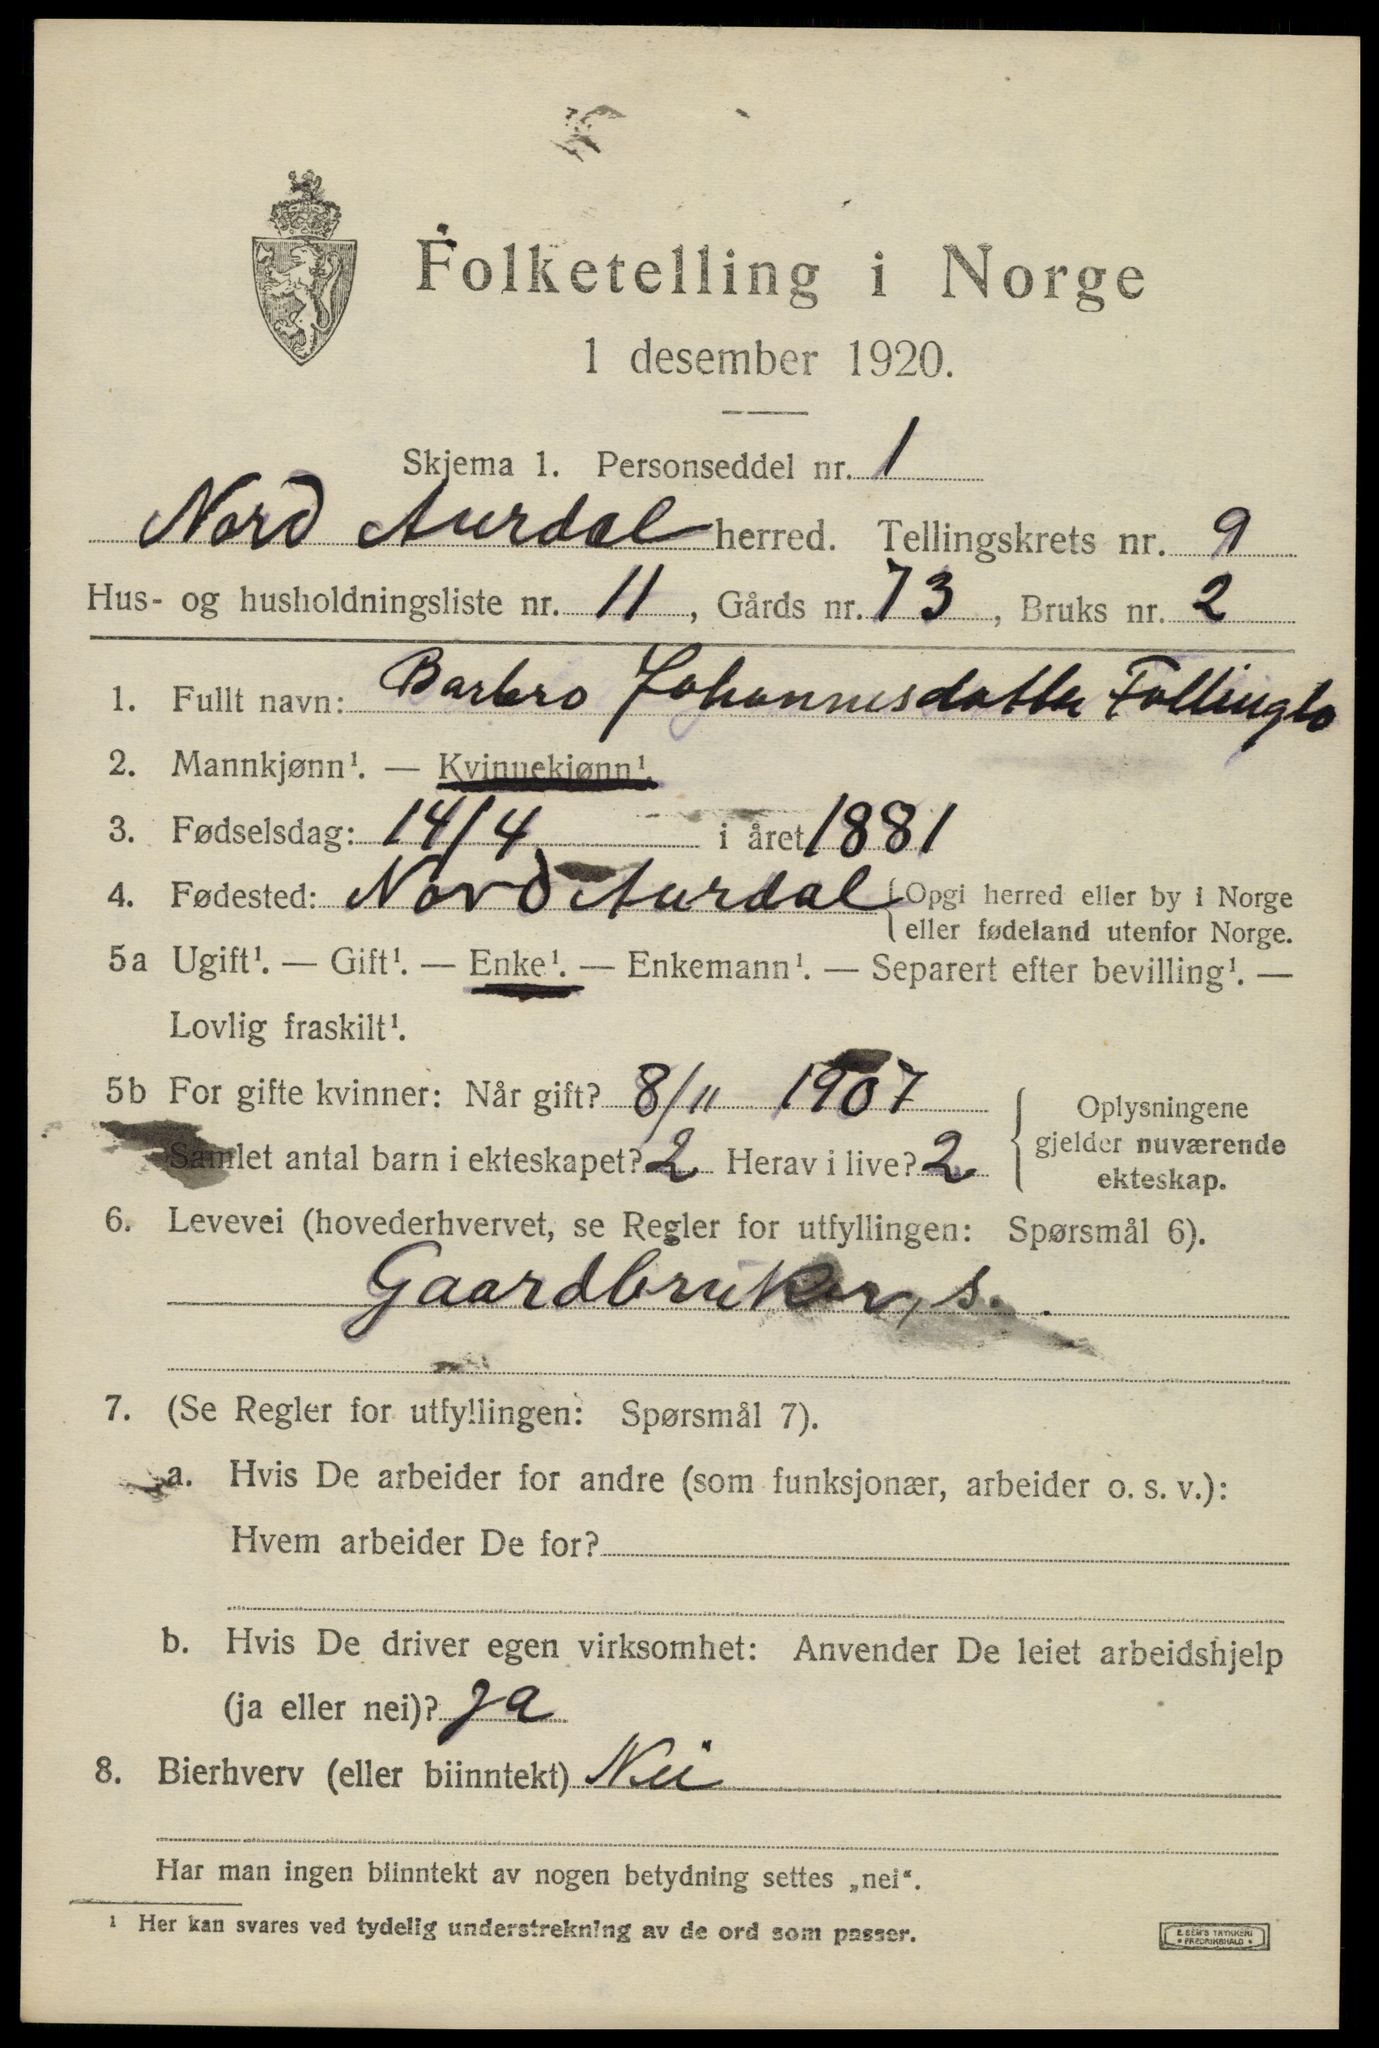 Folketelling i Norge
1 desember 1920.
Skjema 1. Personseddel nr. 1
Nord Aurdal herred. Tellingskrets nr. 9
Hus- og husholdningsliste nr. 11, Gårds nr. 73, Bruks nr. 2
1. Fullt navn: Barbro Johannesdatter Follinglo
2. Mannkjønn¹. — Kvinnekjønn¹.
3. Fødselsdag: 14/4 i året 1881
4. Fødested: Nord Aurdal { Opgi herred eller by i Norge
eller fødeland utenfor Norge.
5a Ugift¹. — Gift¹. — Enke¹. — Enkemann¹. — Separert efter bevilling¹. —
Lovlig fraskilt¹.
5b For gifte kvinner: Når gift? 8/11 1907
Samlet antal barn i ekteskapet? 2 Herav i live? 2
{ Oplysningene
gjelder nuværende
ekteskap.
6. Levevei (hovederhvervet, se Regler for utfyllingen: Spørsmål 6).
Gaardbruker, s.
7. (Se Regler for utfyllingen: Spørsmål 7).
a. Hvis De arbeider for andre (som funksjonær, arbeider o. s. v.):
Hvem arbeider De for?
b. Hvis De driver egen virksomhet: Anvender De leiet arbeidshjelp
(ja eller nei)? Ja
8. Bierhverv (eller biinntekt) Nei
Har man ingen biinntekt av nogen betydning settes „nei“.
¹ Her kan svares ved tydelig understrekning av de ord som passer.
E. SEM'S TRYKKERI
• FREDRIKSHALD •